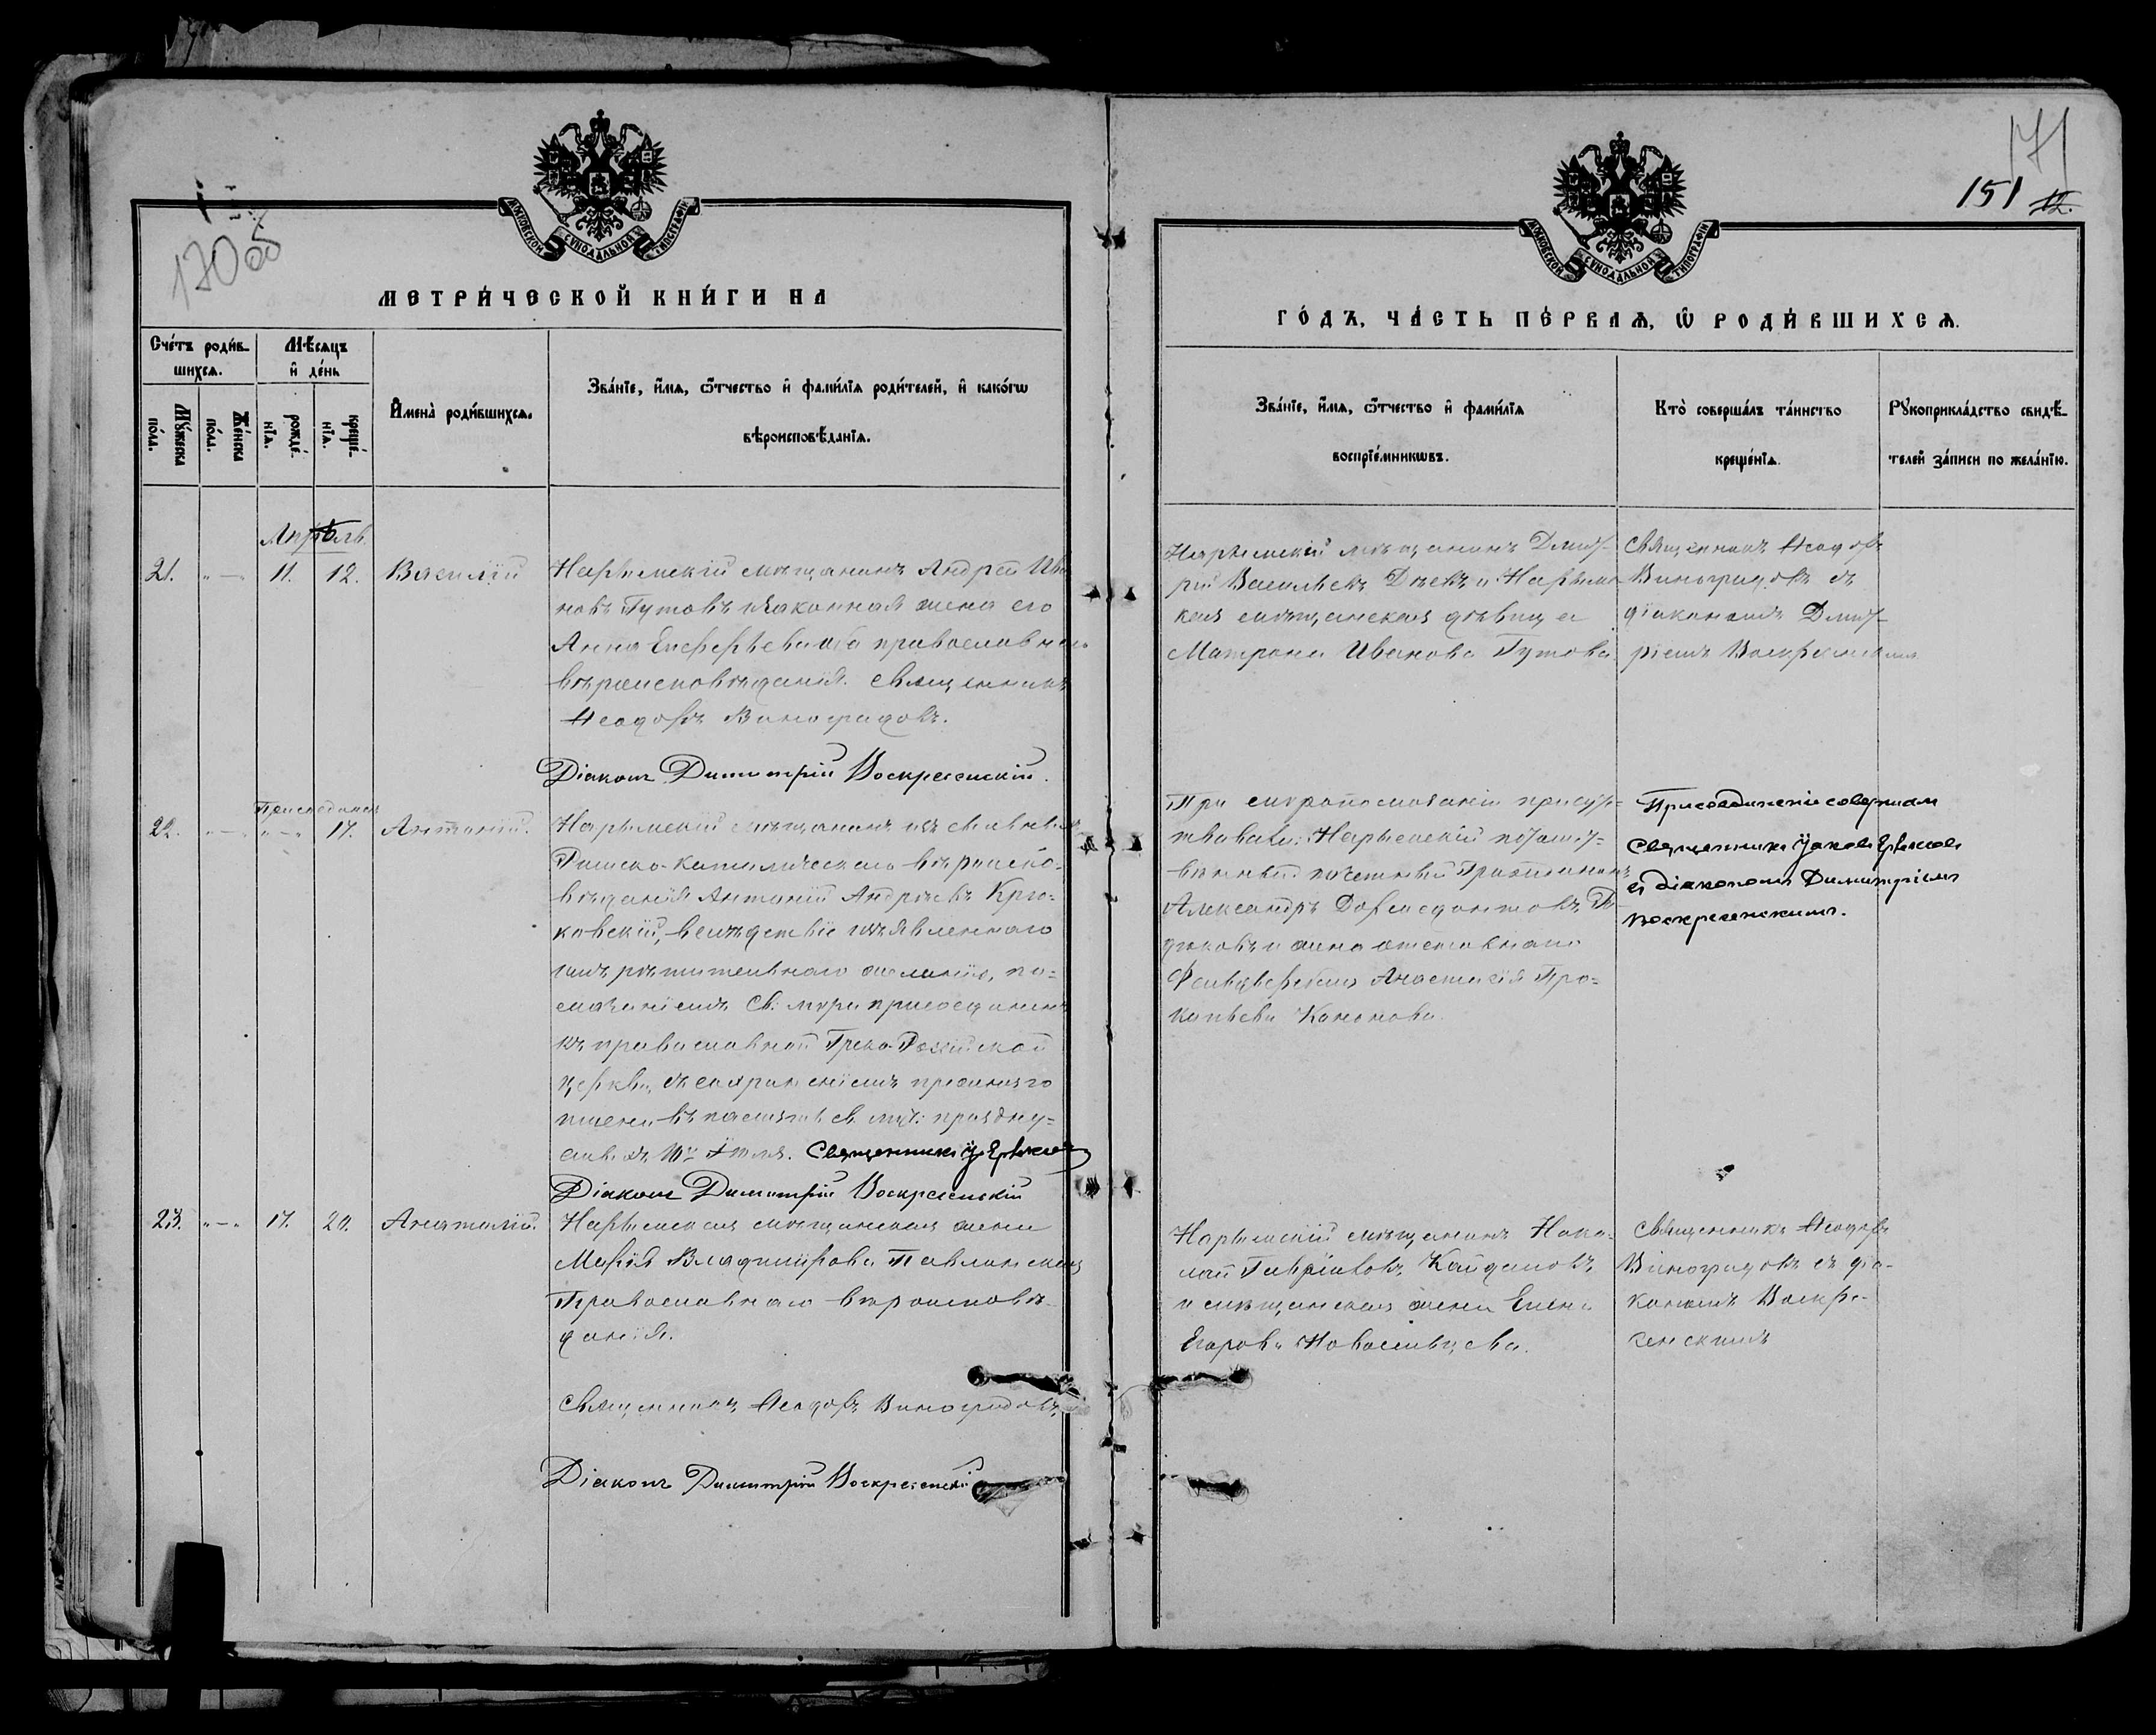 170 об
МОСКОВСКОЙ СѴНОДАЛЬНОЙ ТИПОГРАФІИ
МЕТРИ́ЧЕСКОЙ КНИ́ГИ НА
Сче́тъ роди́в-
шихсѧ.
Мѣ́сѧцъ
и҆ де́нь
Мꙋ́жеска
по́ла.
Же́нска
по́ла.
рожде́-
нїѧ.
креще́-
нїѧ.
И҆мена̀ роди́вшихсѧ.
Зва́нїе, и҆́мѧ, ѻ҆́тчество и҆ фами́лїѧ роди́телей, и҆ како́гѡ
вѣроисповѣ́данїѧ.
Апрѣль.
21. „—„ 11. 12. Василій
Нарымскій мѣщанинъ Андрей Ива
новъ Гутовъ и законная жена его
Анна Елеферьева оба православнаго
вѣроисповѣданія. Священникъ
Ѳеодоръ Виноградовъ.
Діаконъ Димитрій Воскресенскій.
Присоединен
22. „—„ „—„ 17. Антоній.
Нарымскій мѣщанинъ изъ ссыльныхъ
Римско-католическаго вѣроиспо-
вѣданія Антоній Андреевъ Крю-
ковскій, вслѣдствіе изъявленнаго
имъ рѣшительнаго желанія, по-
мазаніемъ Св. мѵра присоединенъ
къ православной Греко-Россійской
церкви, съ сохраненіемъ прежняго
имени въ память св. муч. праздну-
емаго Священникъ
Діаконъ Димитрій Воскресенскій
23. „—„ 17. 20. Анатолій.
Нарымская мѣщанская жена
Марія Владимірова Павлинская
Православнаго вѣроисповѣ-
данія.
Священникъ Ѳеодоръ Виноградовъ
Діаконъ Димитрій Воскресенскій
171
151 12.
МОСКОВСКОЙ СѴНОДАЛЬНОЙ ТИПОГРАФІИ
ГО́ДЪ, ЧА́СТЬ ПЕ́РВАѦ, Ѡ҆ РОДИ́ВШИХСѦ.
Зва́нїе, и҆́мѧ, ѻ҆́тчество и҆ фами́лїѧ
воспрїе́мникѡвъ.
Кто̀ соверша́лъ та́инство
креще́нїѧ.
Рꙋкоприкла́дство свидѣ́-
телей за́писи по жела́нїю.
Нарымскій мѣщанинъ Дмит-
рій Васильевъ Дѣевъ и Нарымс
кая мѣщанская дѣвица
Матрона Иванова Гутова.
Священникъ Ѳеодоръ
Виноградовъ съ
діакономъ Дмит-
ріемъ Воскресенскимъ
При мѵропомазаніи присут-
ствовали: Нарымскій потомст-
венный почетный Гражданинъ
Александръ
и жена
Фельдшера Анастасія Про-
копьева Кононова.
Присоединеніе совершалъ
Священникъ Іаковъ
съ діакономъ Димитріемъ
Воскресенскимъ.
Нарымскій мѣщанинъ Нико-
лай Гавріиловъ Кайдаловъ
и мѣщанская жена Елена
Егорова Новосельцева.
Священникъ Ѳеодоръ
Виноградовъ съ діа-
кономъ Воскре-
сенскимъ